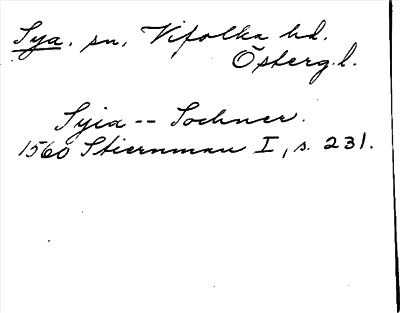 Sya. sn. Vifolka hd.
Österg.l.
Syia -- Sochner.
1560 Stiernman I, s. 231.